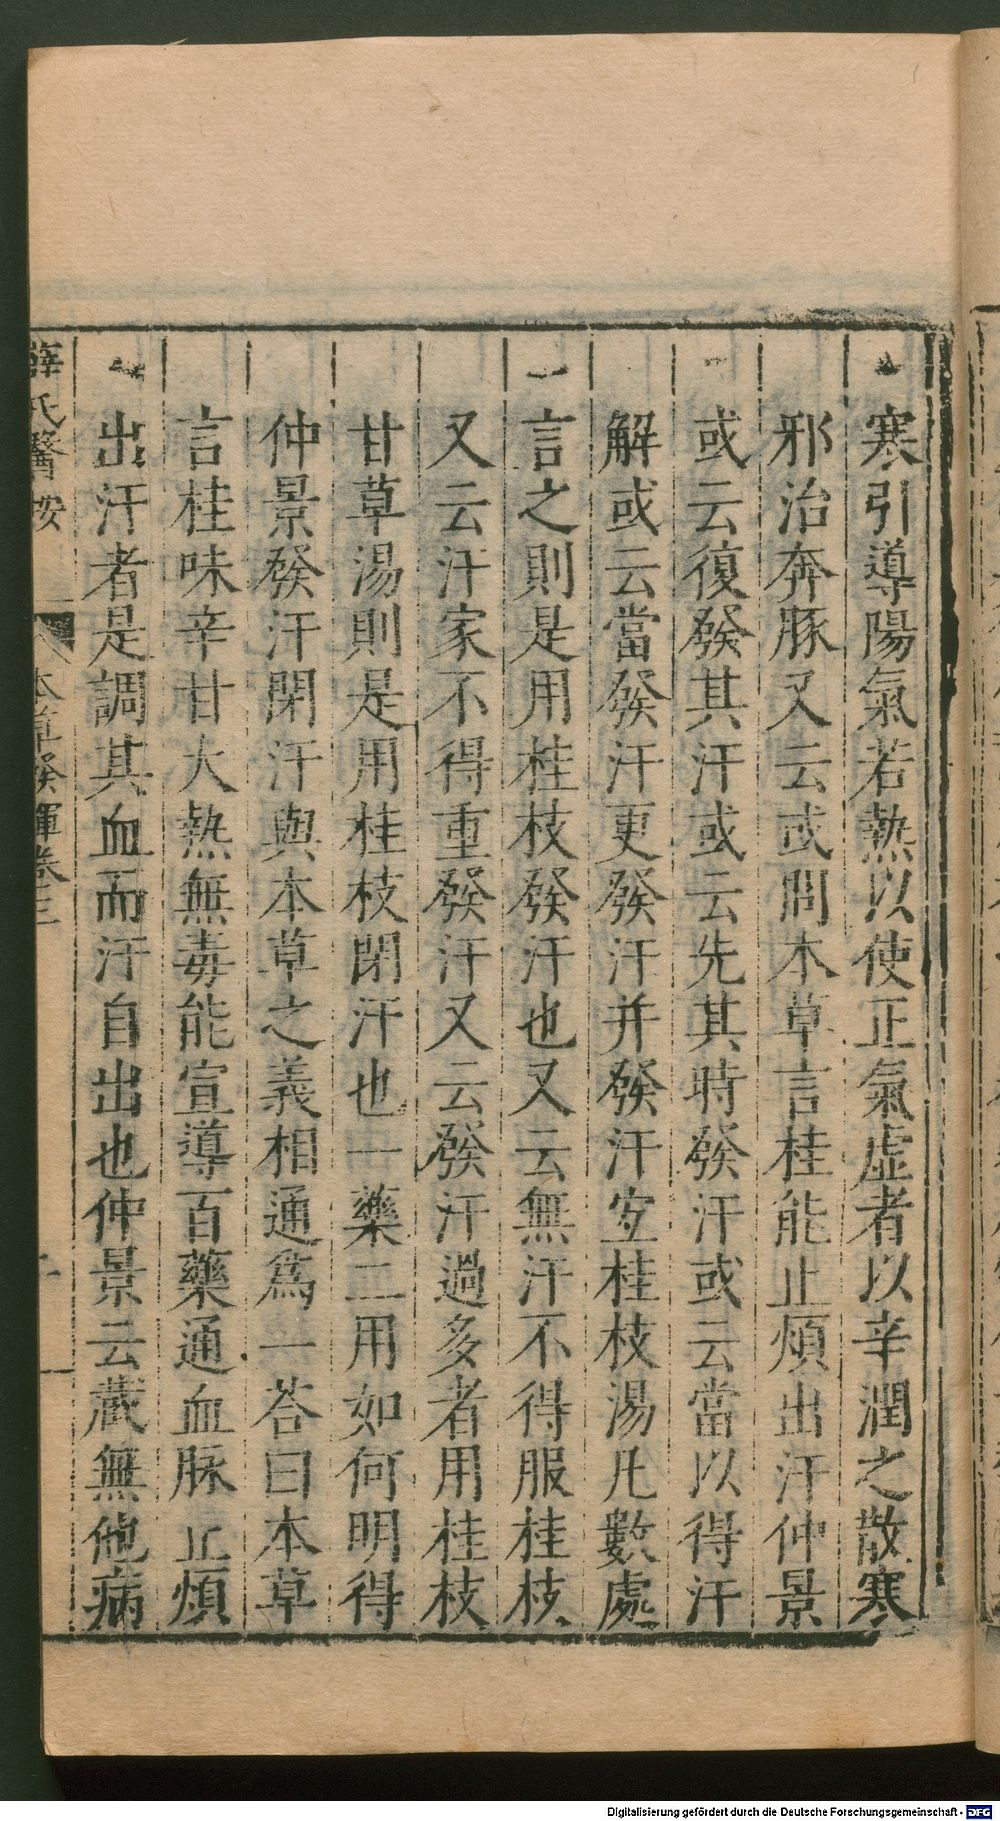 寒引導陽氣若熱以使正氣虛者以辛潤之散寒
邪治奔豚又云或問本草言桂能止煩出汗仲景
或云復發其汗或云先其時發汗或云當以得汗
解或云當發汗更發汗并發汗宜桂枝湯凡數處
言之則是用桂枝發汗也又云無汗不得服桂枝
又云汗家不得重發汗又云發汗過多者用桂枝
甘草湯則是用桂枝閉汗也一藥二用如何明得
仲景發汗閉汗與本草之義相通為一荅曰本草
言桂味辛甘大熱無毒能宣導百藥通血脉止煩
出汗者是調其血而汗自出也仲景云藏無他病
薛氏醫按 本草發揮卷三
Digitalisierung gefördert durch die Deutsche Forschungsgemeinschaft - DFG